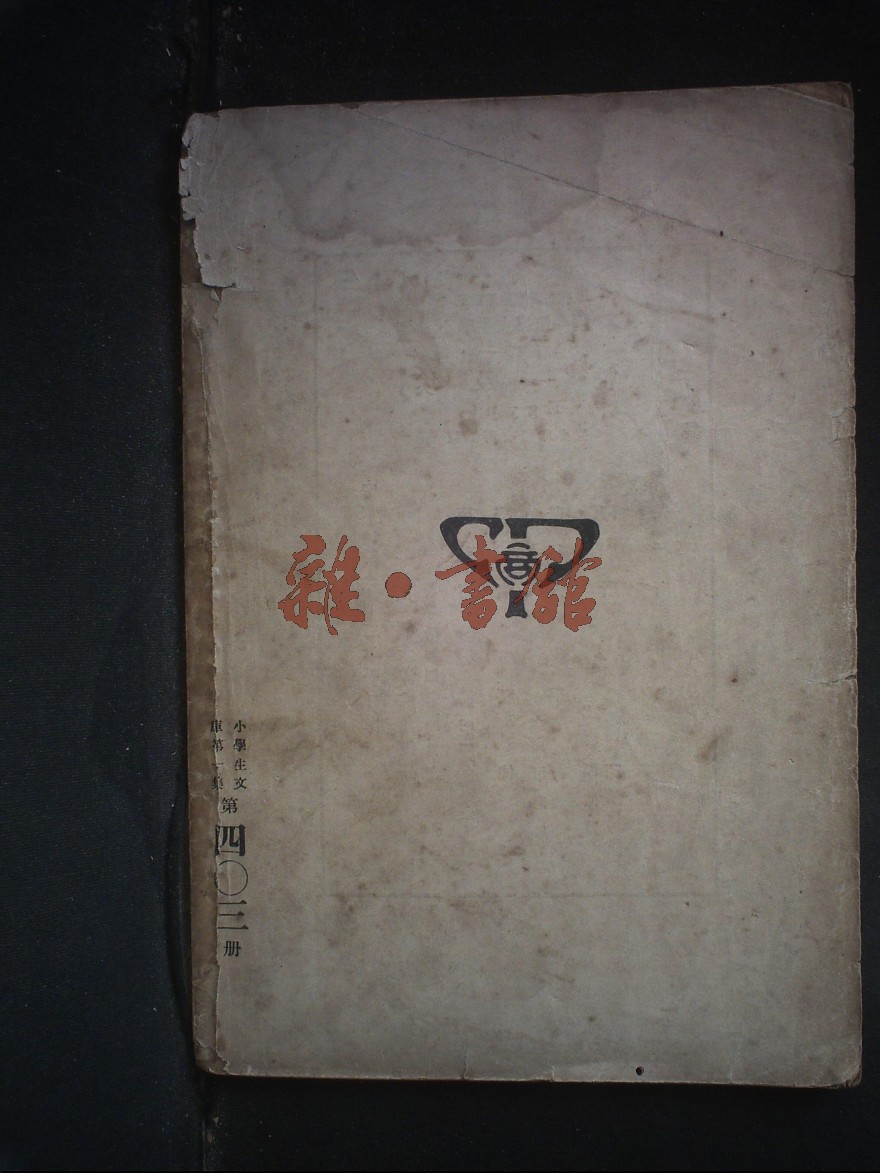 雜·書館
CP
商
小學生文
庫第一集
第四〇三册